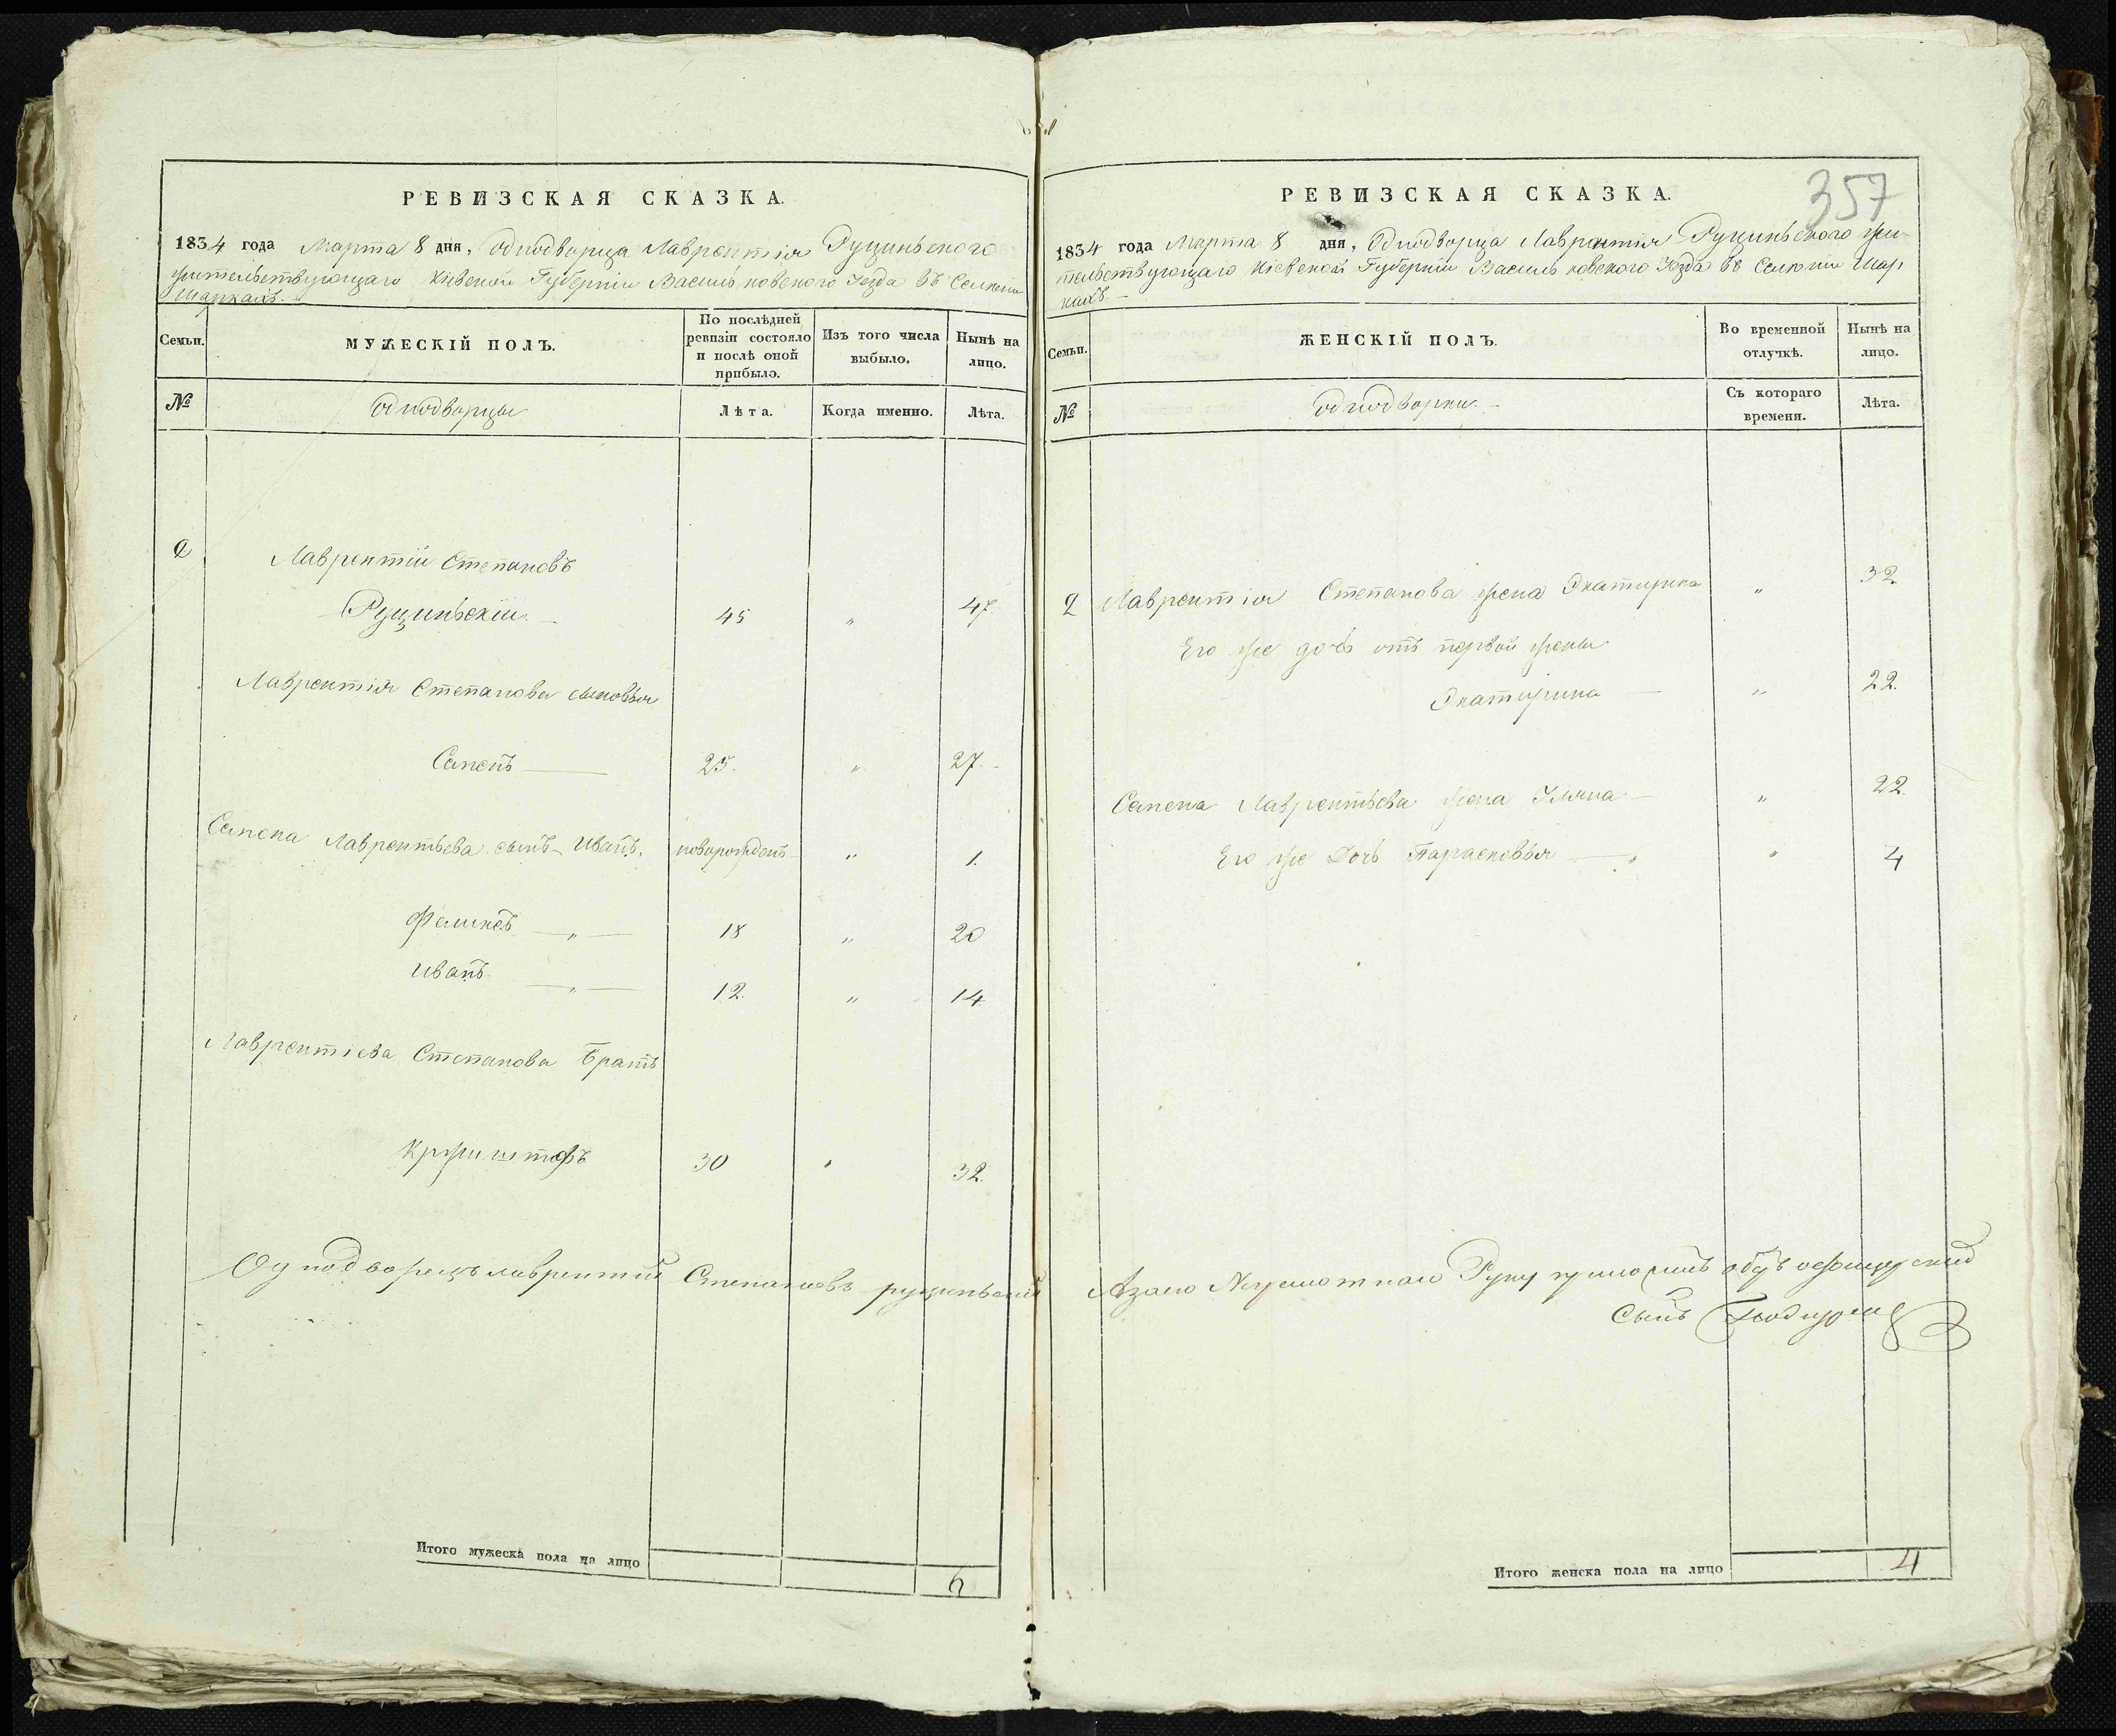 РЕВИЗСКАЯ СКАЗКА.
1834 года Марта 8 дня, Однодворца Лаврентія Руциньского
жительствующаго Кіевской Губерніи Васильковского Уезда въ Селеніи
Шапкахъ.
Семьи.
МУЖЕСКІЙ ПОЛЪ.
По послѣдней ревизіи состояло и послѣ оной прибыло.
Изъ того числа выбыло.
Нынѣ на лицо.
№
Однодворцы
Лѣта.
Когда именно.
Лѣта.
2
Лаврентий Степановъ
Руциньскіи 45 " 47
Лаврентія Степанова сыновья
25. " 27
Лаврентьева сынъ Иванъ, новорожденъ " 1.
Феликсъ " 18 " 20
Иванъ " 12. " 14
Лаврентіева Степанова Братъ
Кржиштофъ 30 " 32.
Однодворецъ лаврентий Степановъ руциньский
Итого мужеска пола на лицо 6
357
РЕВИЗСКАЯ СКАЗКА.
1834 года Марта 8 дня, Однодворца Лаврентія Руциньского жи-
тельствующаго Кіевской Губерніи Васильковского Уезда въ Селеніи Шап
кахъ
Семьи.
ЖЕНСКІЙ ПОЛЪ.
Во временной отлучкѣ.
Нынѣ на лицо.
№
однодворки.
Съ котораго времени.
Лѣта.
2 Лаврентія Степанова жена Экатирина " 32
Его же дочь отъ первой жены
Экатирина " 22.
Лаврентьева жена " 22.
Его же Дочь Парасковья " 4
Азаго Неграмотнаго Руку
Сынъ
Итого женска пола на лицо 4